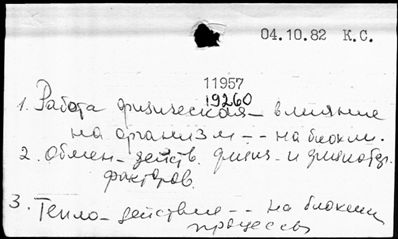 04.10.82 К.С.
11957
19260
1. Работа физическая – влияние
на организм -- на биохим.
2. Обмен – действ. физич – и физиотер.
факторов.
3. Тепло – действие -- на биохим
процессы